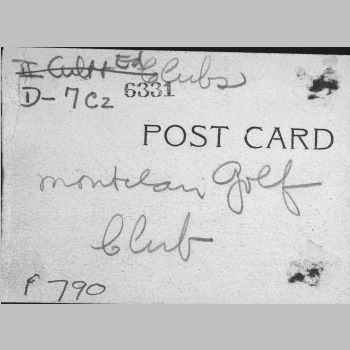 II Cult Ed Clubs
D-7C2 6331
POST CARD
montclair Golf
Club
F 790